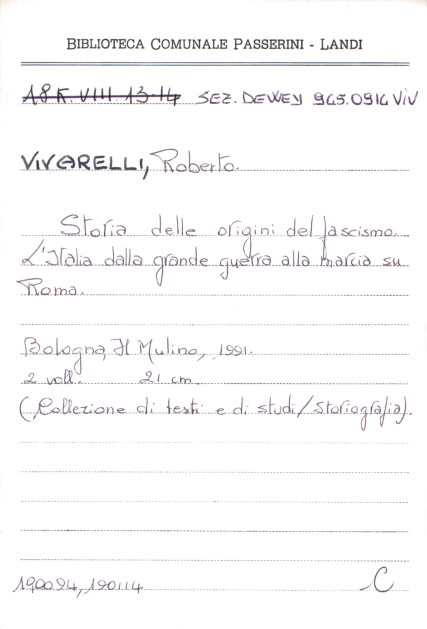 BIBLIOTECA COMUNALE PASSERINI - LANDI
18 K. VIII 13-14 SEZ. DEWEY 945.0914 VIV
VIVARELLI, Roberto.
Storia delle origini del fascismo.
L'Italia dalla grande guerra alla marcia su
Roma.
Bologna, Il Mulino, 1991.
2 voll. 21 cm.
(Collezione di testi e di studi/Storiografia).
190094, 190114 C